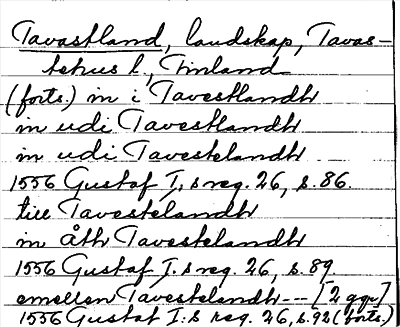 Tavastland, landskap, Tavas-
tehus l., Finland
(forts.) in i Tavestlandh
in udi Tavestlandh
in udi Tavestelandh
1556 Gustaf I:s reg. 26, s. 86.
till Tavestelandh
in åth Tavestelandh
1556 Gustaf I:s reg. 26, s. 89
emellan Tavestelandh --- [2 ggr]
1556 Gustaf I:s reg. 26, s. 92 (forts.)